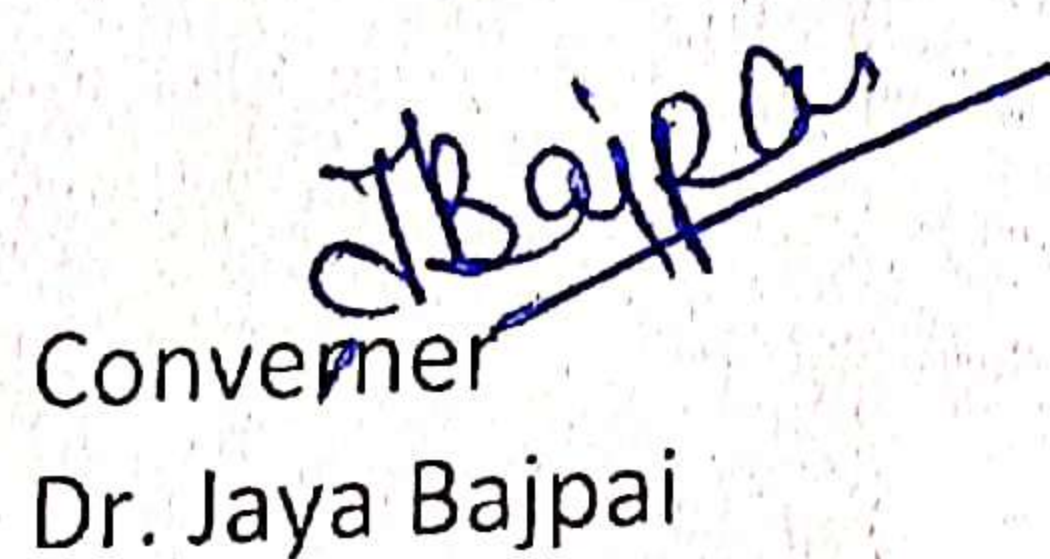 JBajpai
Converner
Dr. Jaya Bajpai